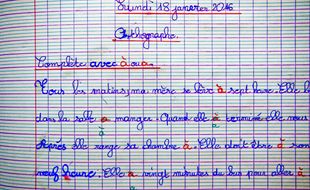 Lundi 18 janvier 2016
Orthographe.
Complète avec à ou a.
Tous les matins, ma mère se lève à sept heure. Elle
dans la salle a manger. Quand elle a terminé elle
Après elle range sa chambre à. Elle doit être à
neuf heure. Elle a vingt minutes du bus pour aller à